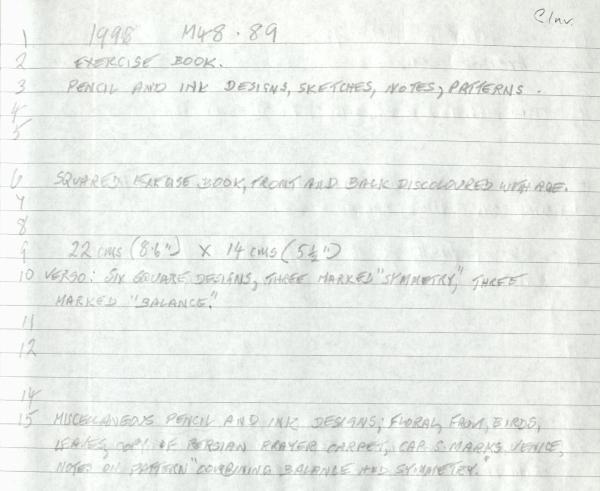 C/nv.
1 1998 M48.89
2 EXERCISE BOOK.
3 PENCIL AND INK DESIGNS, SKETCHES, NOTES, PATTERNS.
4
5
6 SQUARED EXERCISE BOOK, FRONT AND BACK DISCOLOURED WITH AGE.
7
8
9 22 cms (8.6") X 14 cms (5½")
10 VERSO: SIX SQUARE DESIGNS, THREE MARKED "SYMMETRY," THREE
MARKED "BALANCE."
11
12
14
15 MISCELLANEOUS PENCIL AND INK DESIGNS; FLORAL, BIRDS,
LEAVES, COPY OF PERSIAN PRAYER CARPET, CAP S. MARKS VENICE,
NOTES ON PATTERN "COMBINING BALANCE AND SYMMETRY."